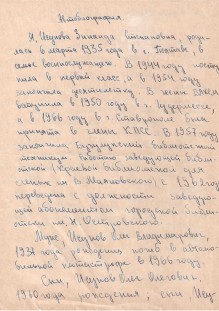 Автобиография.
Я, Исупова Зинаида Степановна, роди-
лась 6 марта 1935 года в г. Полтаве, в
семье военнослужащего. В 1944 году посту-
пила в первый класс, а в 1954 году
закончила десятилетку. В члены ВЛКСМ
вступила в 1950 году в г.
а в 1966 году в г. Ставрополе был
принята в члены КПСС. В 1957 году
закончила библиотечный
техникум. Работаю заведующей библио-
текой
им. В. Маяковского), с 1962 г.
переведена с должности заведую-
щей абонементом городской библио-
теки им. Н. Островского.
Муж, Исупов Олег Владимирович,
1934 года рождения, погиб в автомо-
бильной катастрофе в 1966 году.
Сын, Исупов Олегович,
1960 года рождения,